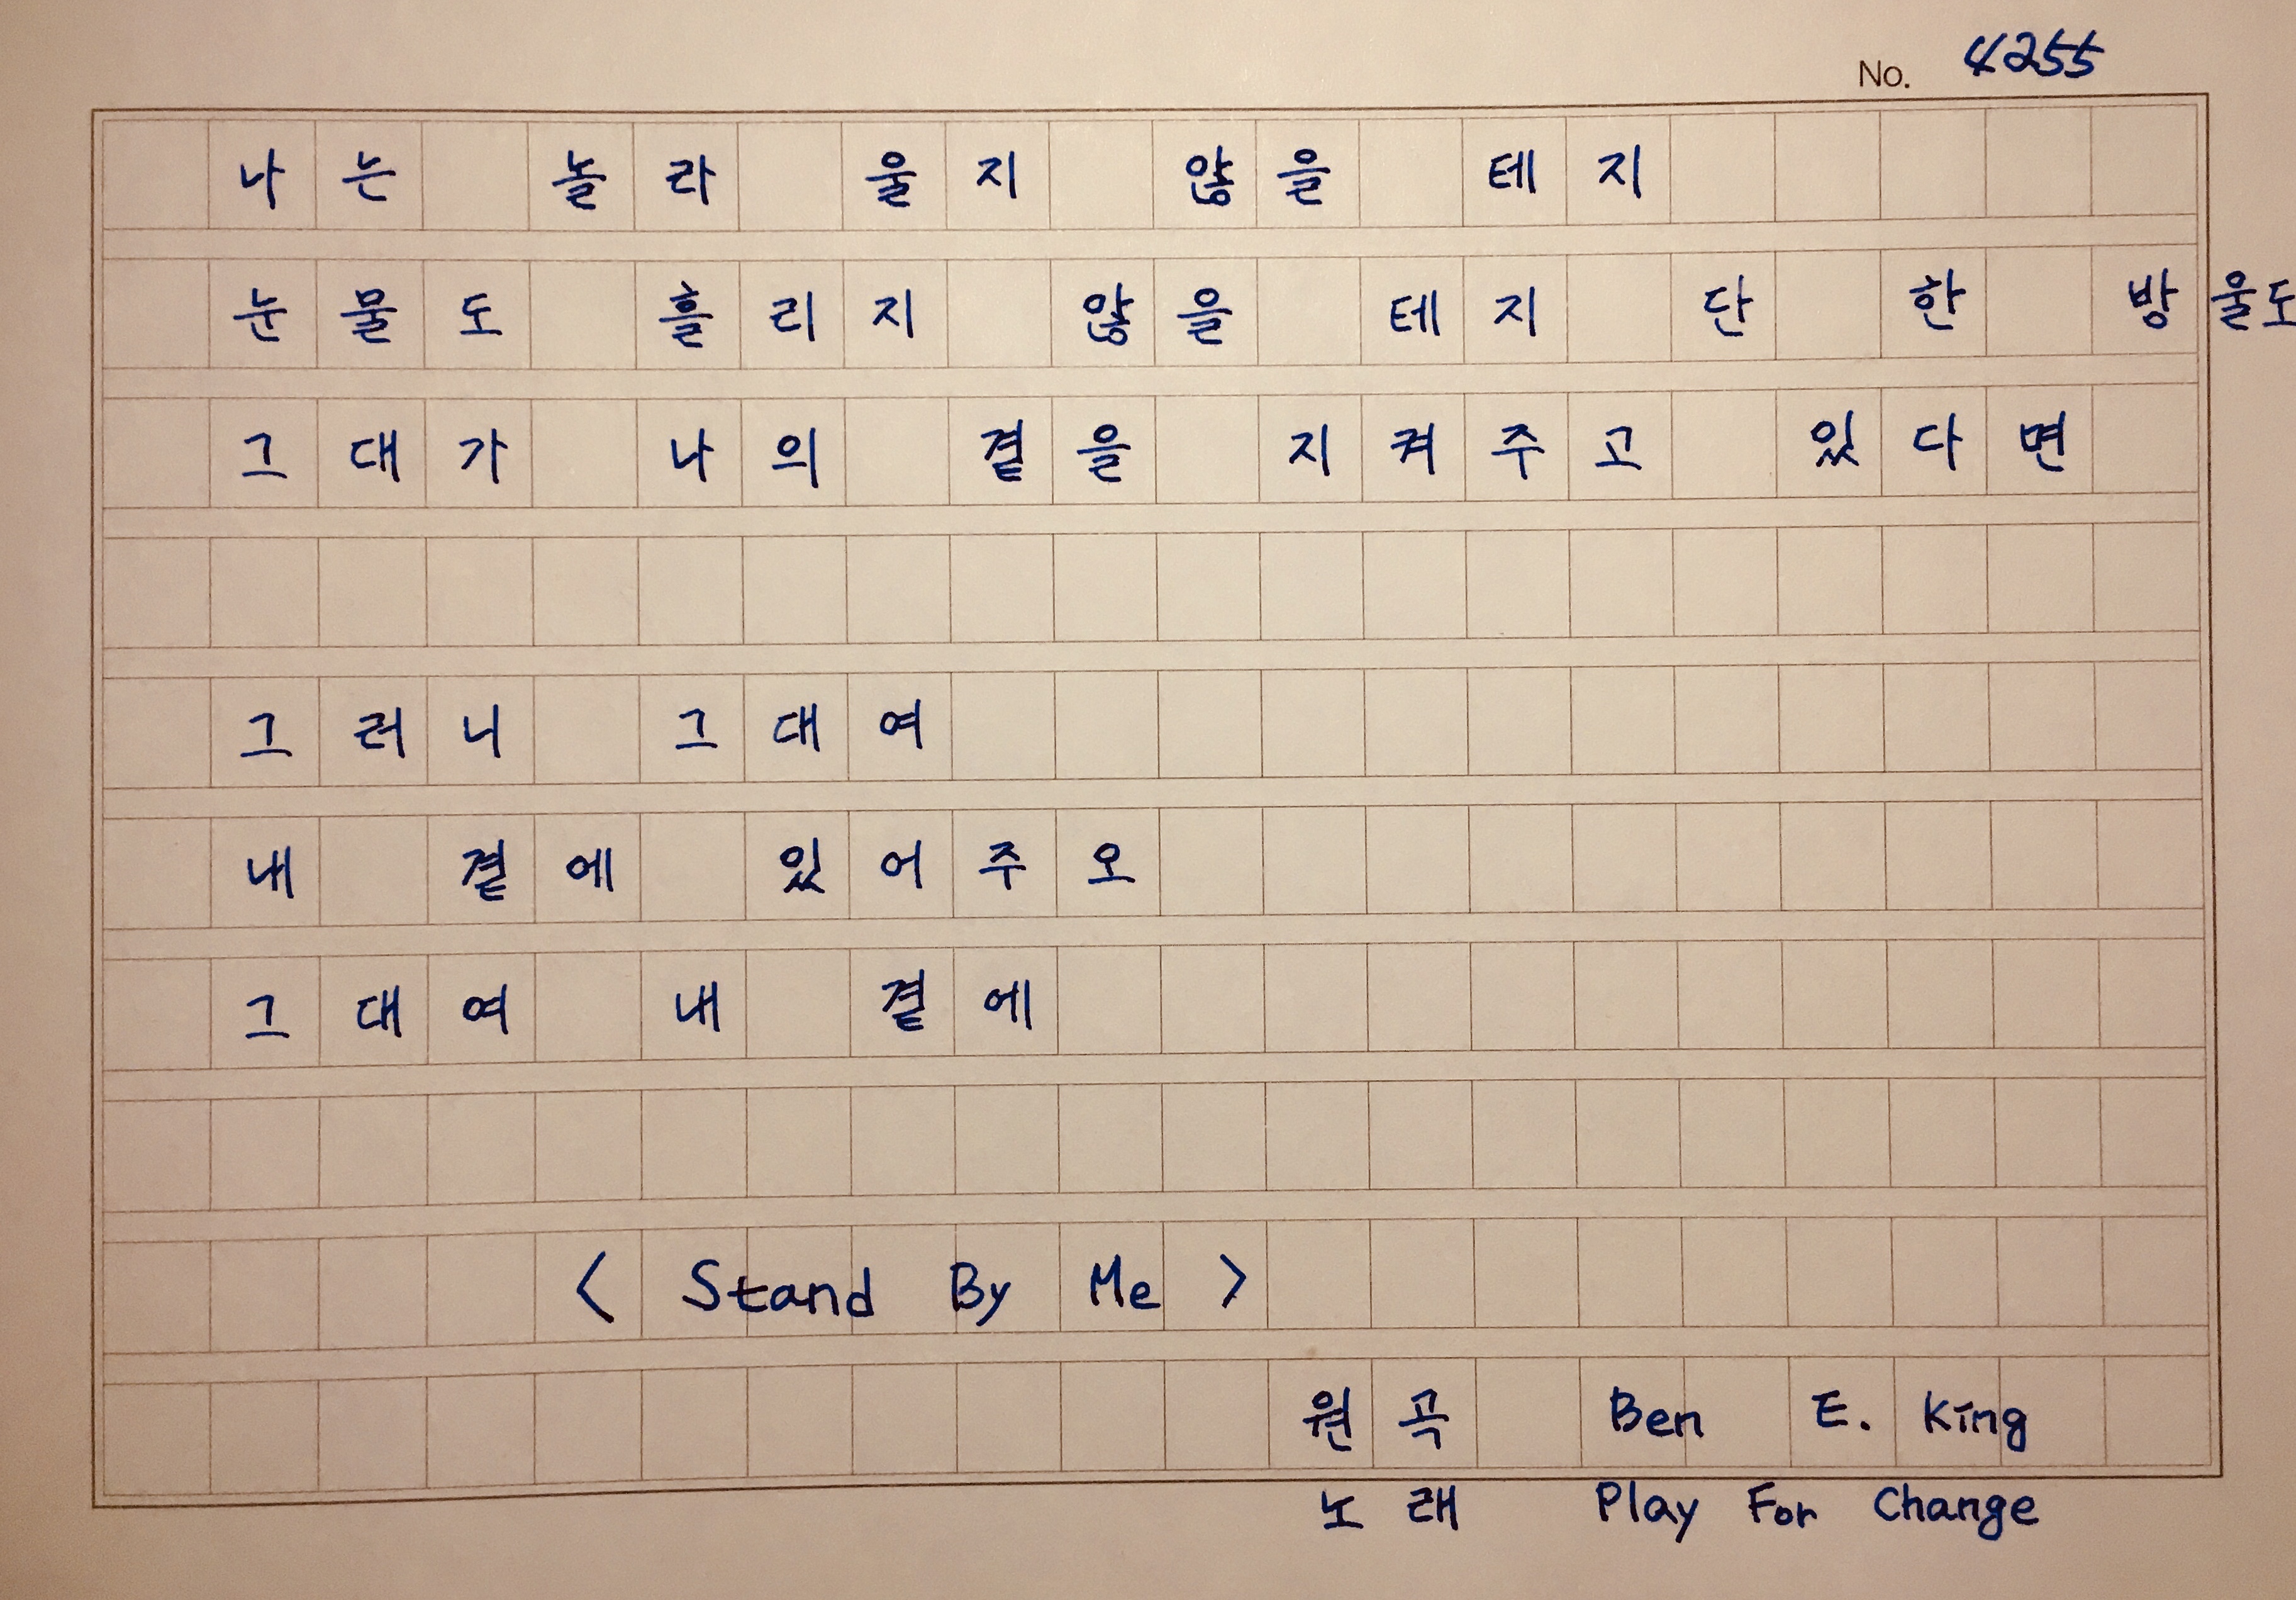 No. 4255
나는 놀라 울지 않을 테지
눈물도 흘리지 않을 테지 단 한 방울도
그대가 나의 곁을 지켜주고 있다면
그러니 그대여
내 곁에 있어주오
그대여 내 곁에
< Stand By Me >
원곡 Ben E. King
노래 Play For Change